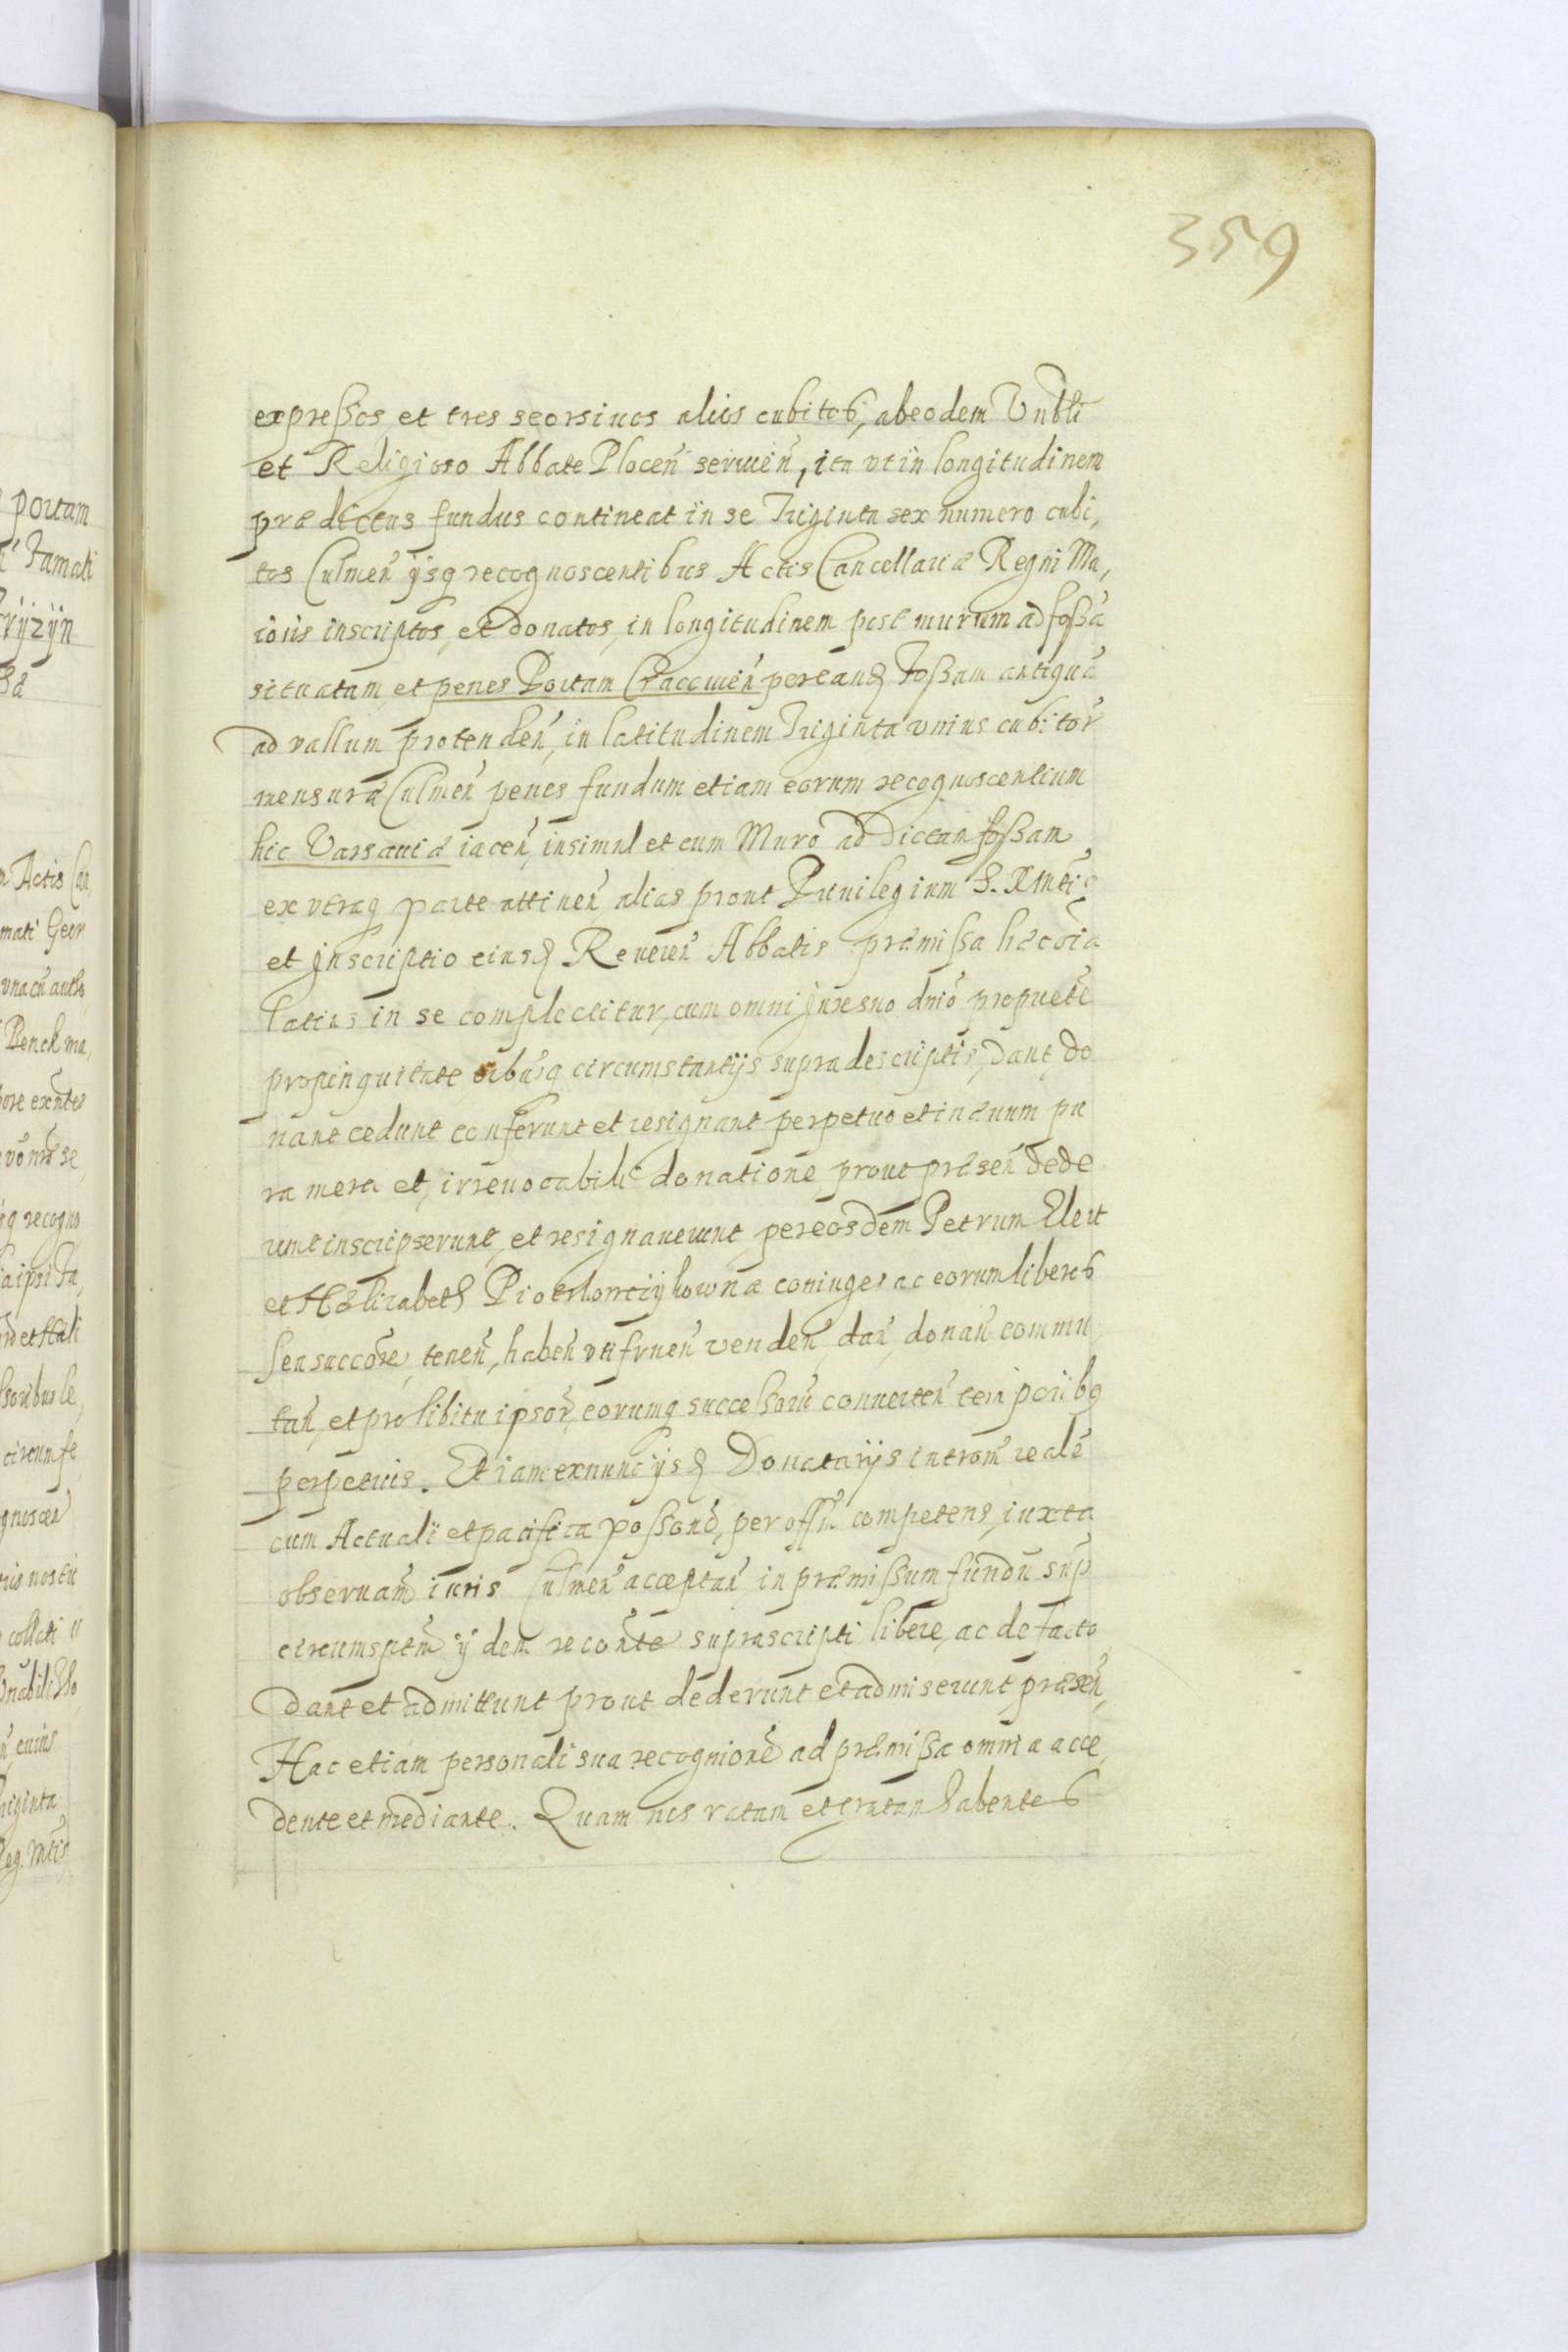 359
expressos et tres seorsivos alios cubitos, ab eodem Vnbli
et Religioso Abbate Plocen̄ servien̄, ita vt in longitudinem
prædictus fundus contineat in se Triginta sex numero cubi,
tos Culmen̄ ijsq recognoscentibus Actis Cancellariæ Regni Ma,
ioris inscriptos, et donatos, in longitudinem post murum ad fossā
situatam et penes Portam Cracovien̄ per eand Fossam antiquā
ad vallum protenden̄, in latitudinem Triginta vnius cubitor̄
mensura Culmen̄ penes fundum etiam eorum recognoscentium
hic Varsaviæ iacen̄, insimul et cum Muro ad dictam fossam
ex vtraq parte attinen̄ alias prout Privilegium S. R Mtis
et Inscriptio eiusd Reveren̄ Abbatis præmissa hæc oīa
latius in se complectitur, cum omni Jure suo dnīo proprietē
propinquitate oībusq circumstantijs supra descriptis, dant, do
nant cedunt conferunt et resignant perpetuo et in ævum pu
ra mera et irrevocabili donatione prout præsen̄ dede
runt inscripserunt, et resignaverunt per eosdem Petrum Elert
et Helizabeth Piotrkowczykowna coniuges ac eorum liberos
seu succōre, tenen̄, haben̄ vtifruen̄ venden̄, dan̄, donan̄ commu
tan̄, et pro libitu ipsor̄, eorumq successorū converten̄ temporibq
perpetuis. Et iam ex nunc ijsd Donatarijs introm̄ realē
cum Actuali et pacifica possonē, per offm̄ competens, iuxta
observam̄ iuris Culmen̄ acceptan̄ in præmissum fundū sup
circumsptm̄ ijdem recōnte suprascripti libere, ac de facto
dant et admittunt prout dederunt et admiserunt, præsen̄,
Hac etiam personali sua recognionē ad præmissa omnia acce,
dente et mediante. Quam nos ratam et gratam habentes